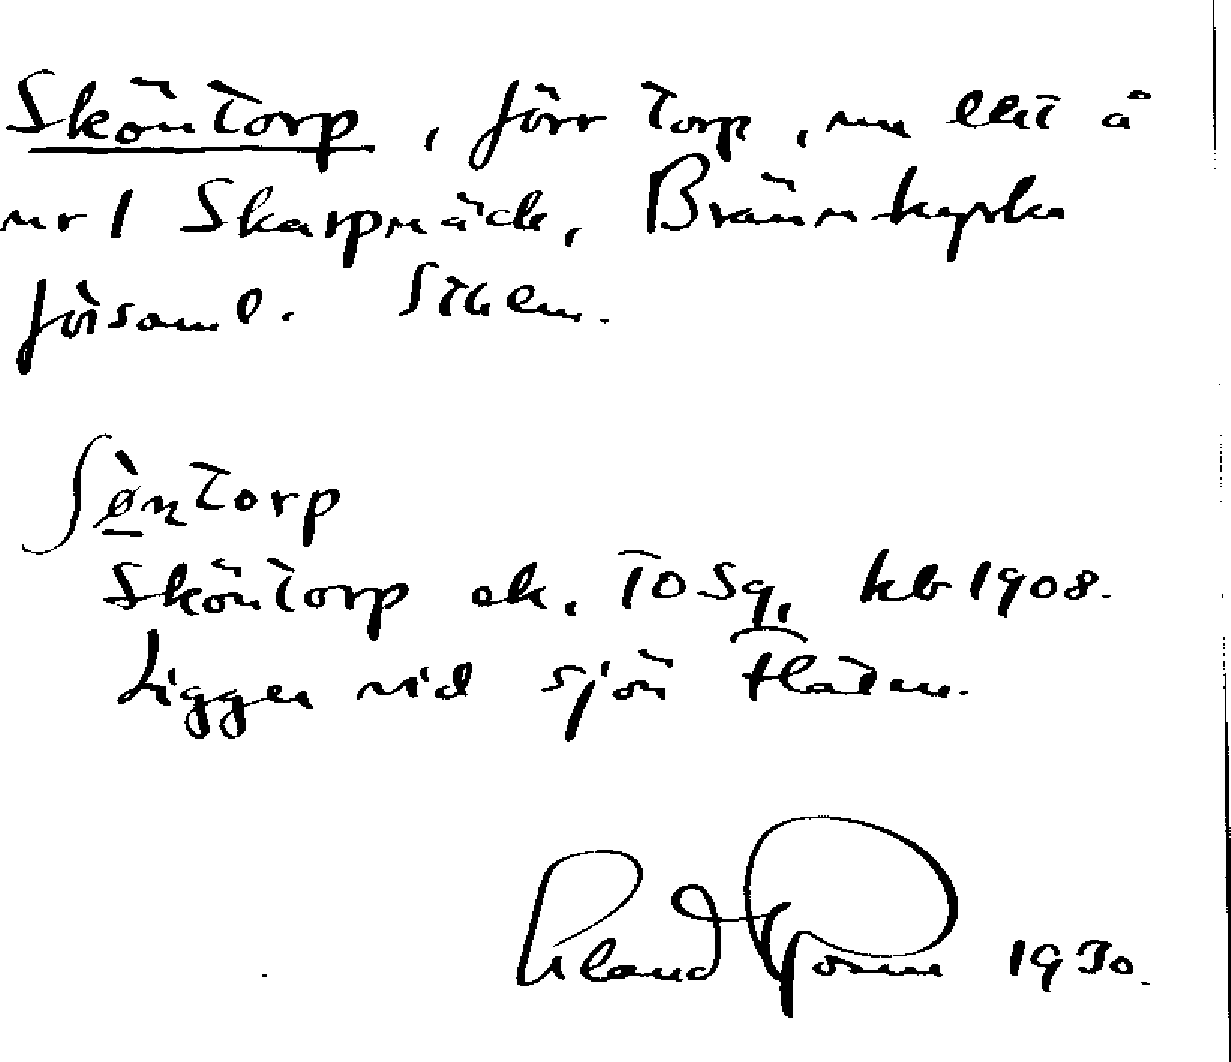 Sköntorp, förr torp, nu lht å
nr 1 Skarpnäck, Brännkyrka
församl. Sthlm.
ʃø̀ntorp
Sköntorp ek. 10 Sq. kb 1908.
Ligger vid sjön Flaten.
Roland 1930.